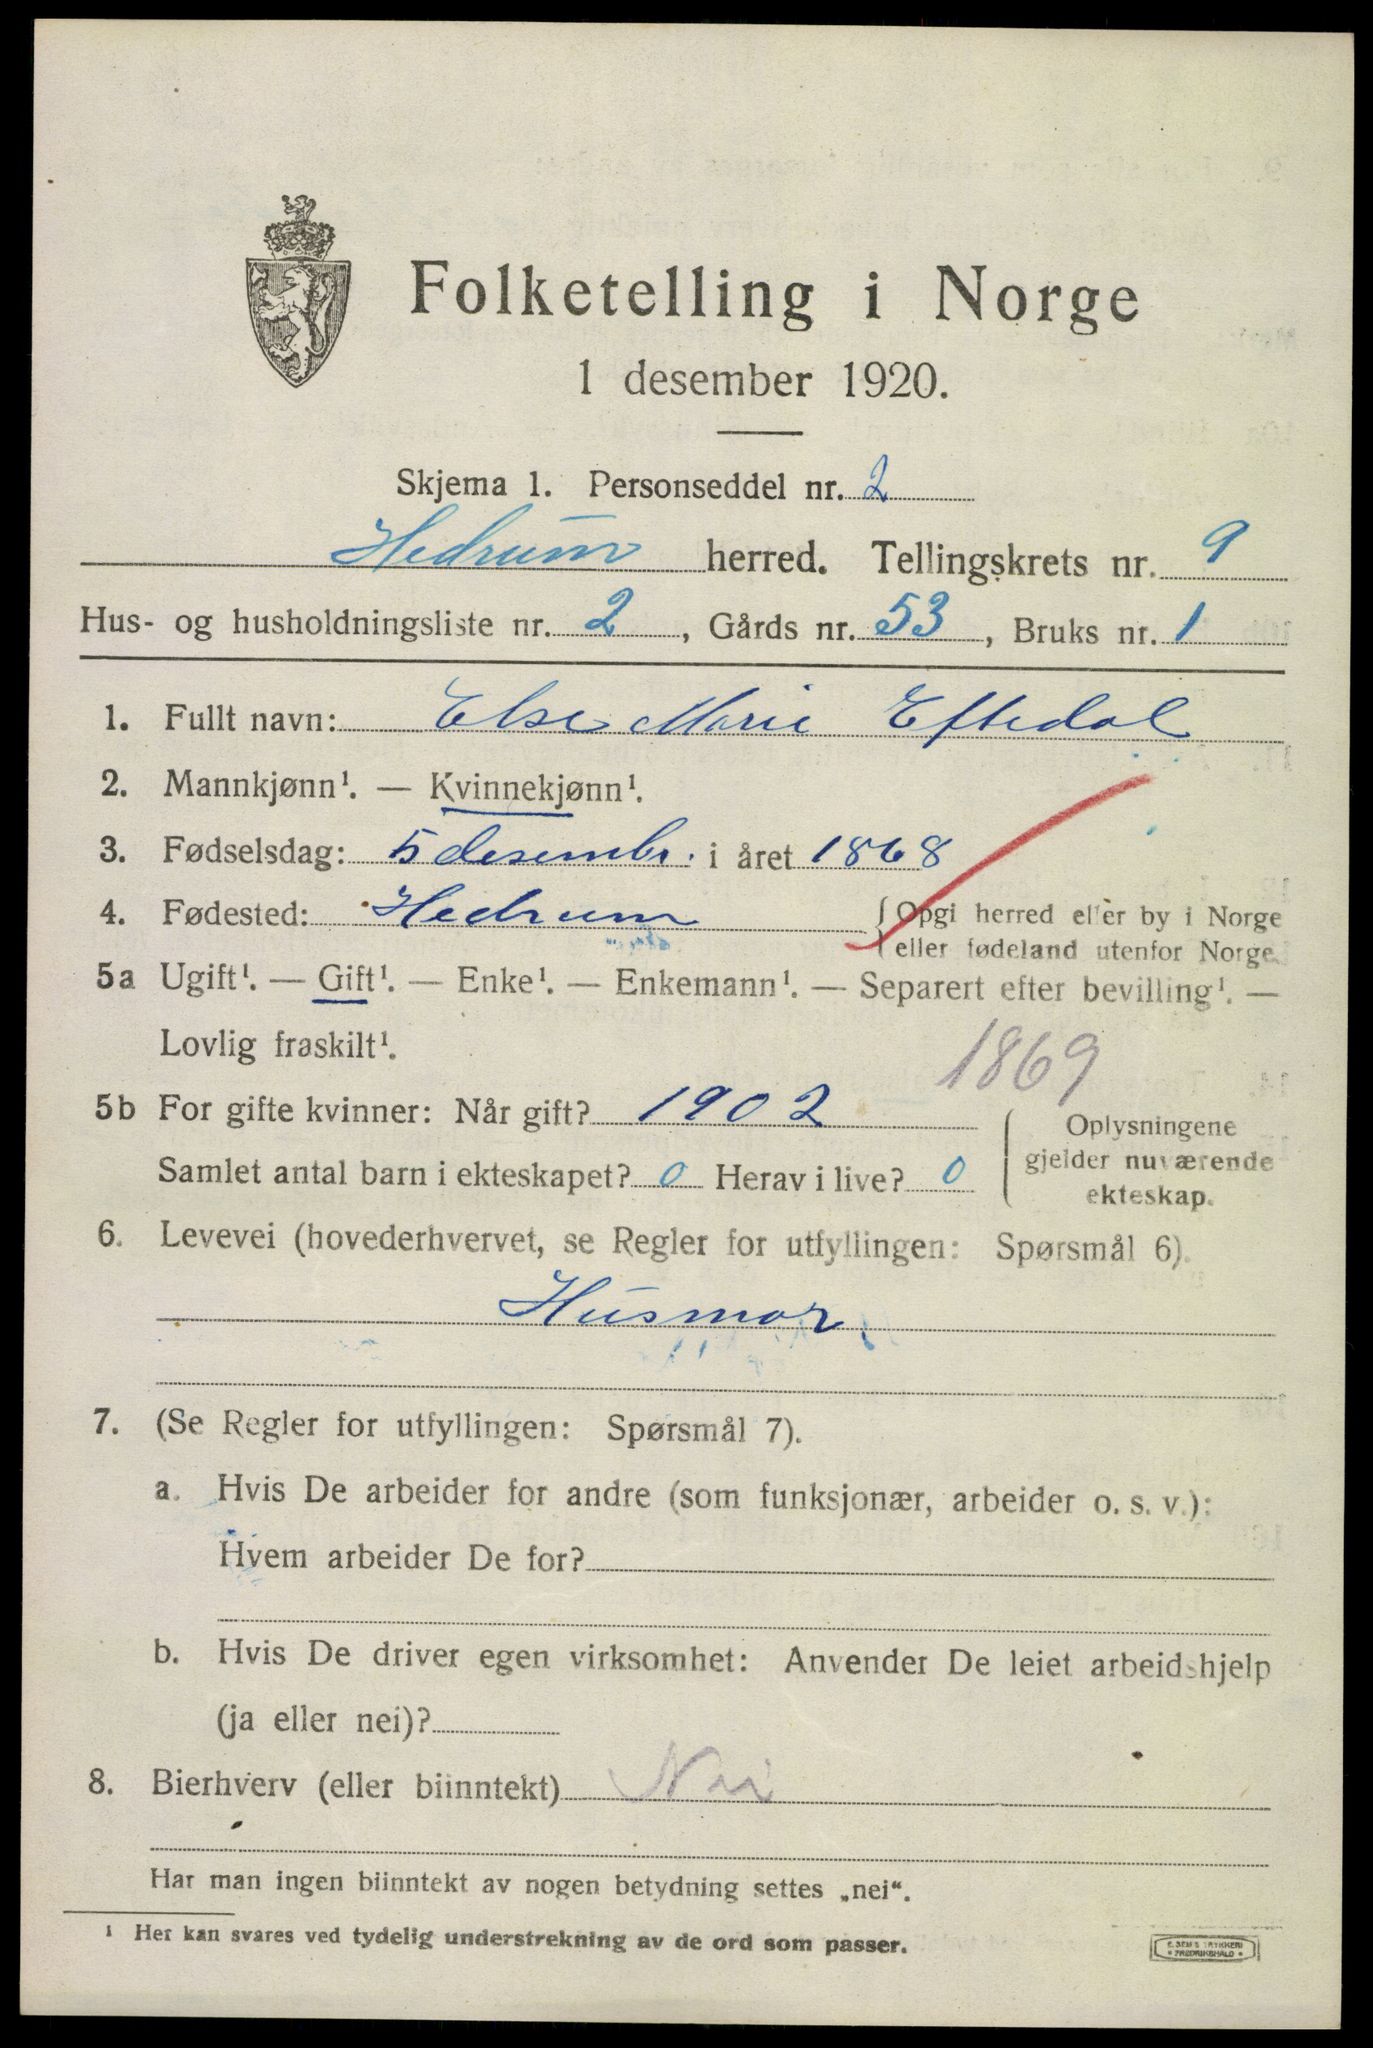 Folketelling i Norge
1 desember 1920.
Skjema 1. Personseddel nr. 2
Hedrum herred. Tellingskrets nr. 9
Hus- og husholdningsliste nr. 2, Gårds nr. 53, Bruks nr. 1
1. Fullt navn: Else Marie Eftedal
2. Mannkjønn¹. — Kvinnekjønn¹.
3. Fødselsdag: 5 desembr. i året 1868
4. Fødested: Hedrum {Opgi herred eller by i Norge
eller fødeland utenfor Norge.
5a Ugift¹. — Gift¹. — Enke¹. — Enkemann¹. — Separert efter bevilling¹. —
Lovlig fraskilt¹.
1869
5b For gifte kvinner: Når gift? 1902
Samlet antal barn i ekteskapet? 0 Herav i live? 0
Oplysningene
gjelder nuværende
ekteskap.
6. Levevei (hovederhvervet, se Regler for utfyllingen: Spørsmål 6).
Husmor
7. (Se Regler for utfyllingen: Spørsmål 7).
a. Hvis De arbeider for andre (som funksjonær, arbeider o. s. v.):
Hvem arbeider De for?
b. Hvis De driver egen virksomhet: Anvender De leiet arbeidshjelp
(ja eller nei)?
8. Bierhverv (eller biinntekt) Nei
Har man ingen biinntekt av nogen betydning settes „nei“.
¹ Her kan svares ved tydelig understrekning av de ord som passer.